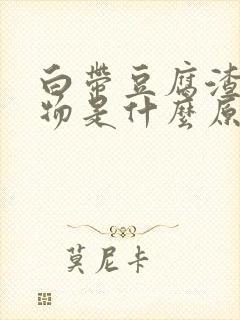 白带豆腐渣
物是什麼原
莫尼卡